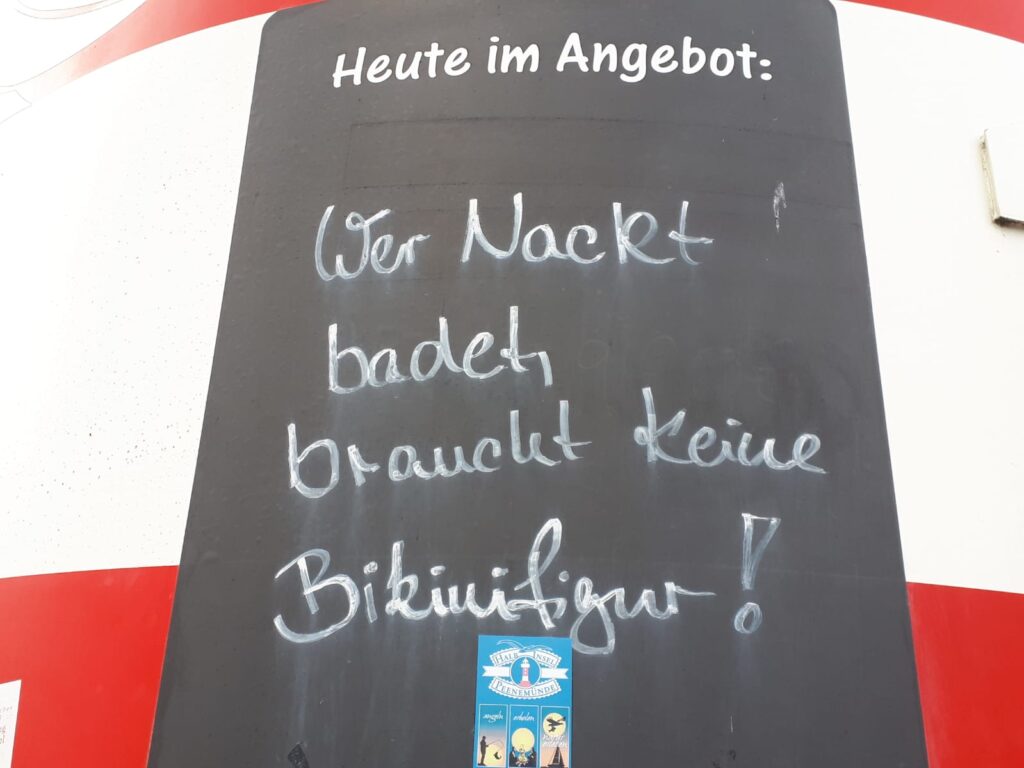 Heute im Angebot:
Wer Nackt
badet,
braucht keine
Bikinifigur!
HALB INSEL
PEENEMÜNDE
angeln
erholen